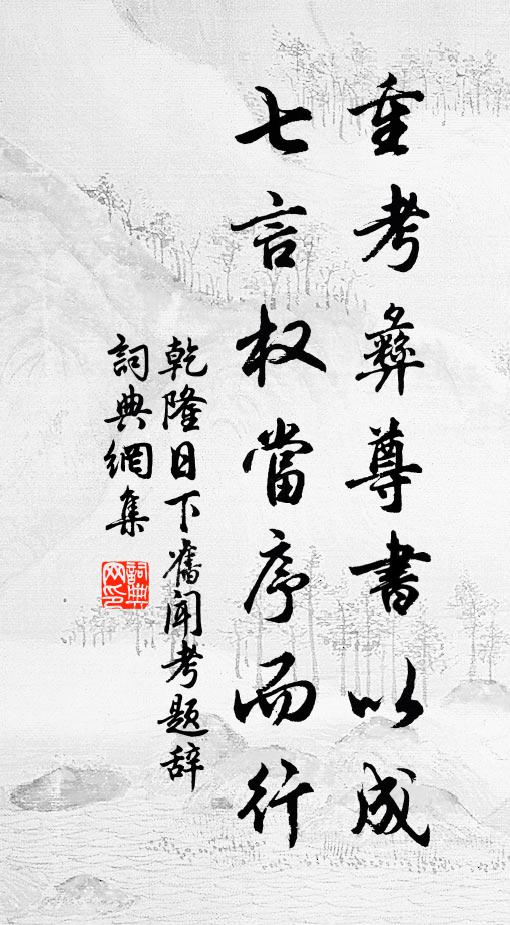 重考彝尊書以成
七言权當序而行
乾隆日下舊聞考题辞
詞典網集
詞典网印